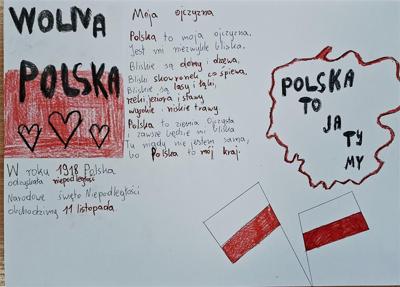 WOLNA
POLSKA
W roku 1918 Polska
odzyskała niepodległość
Narodowe święto Niepodległości
obchodzimy 11 listopada.
Moja ojczyzna
Polska to moja ojczyzna.
Jest mi niezwykle bliska.
Bliskie są domy i drzewa,
Bliski skowronek, co śpiewa.
Bliskie są lasy i łąki,
rzeki jeziora i stawy
wysokie i niskie trawy.
Polska to ziemia Ojczysta
i zawsze będzie mi bliska
Tu nigdy nie jestem sama,
bo Polska to mój kraj.
POLSKA
TO
JA
TY
MY